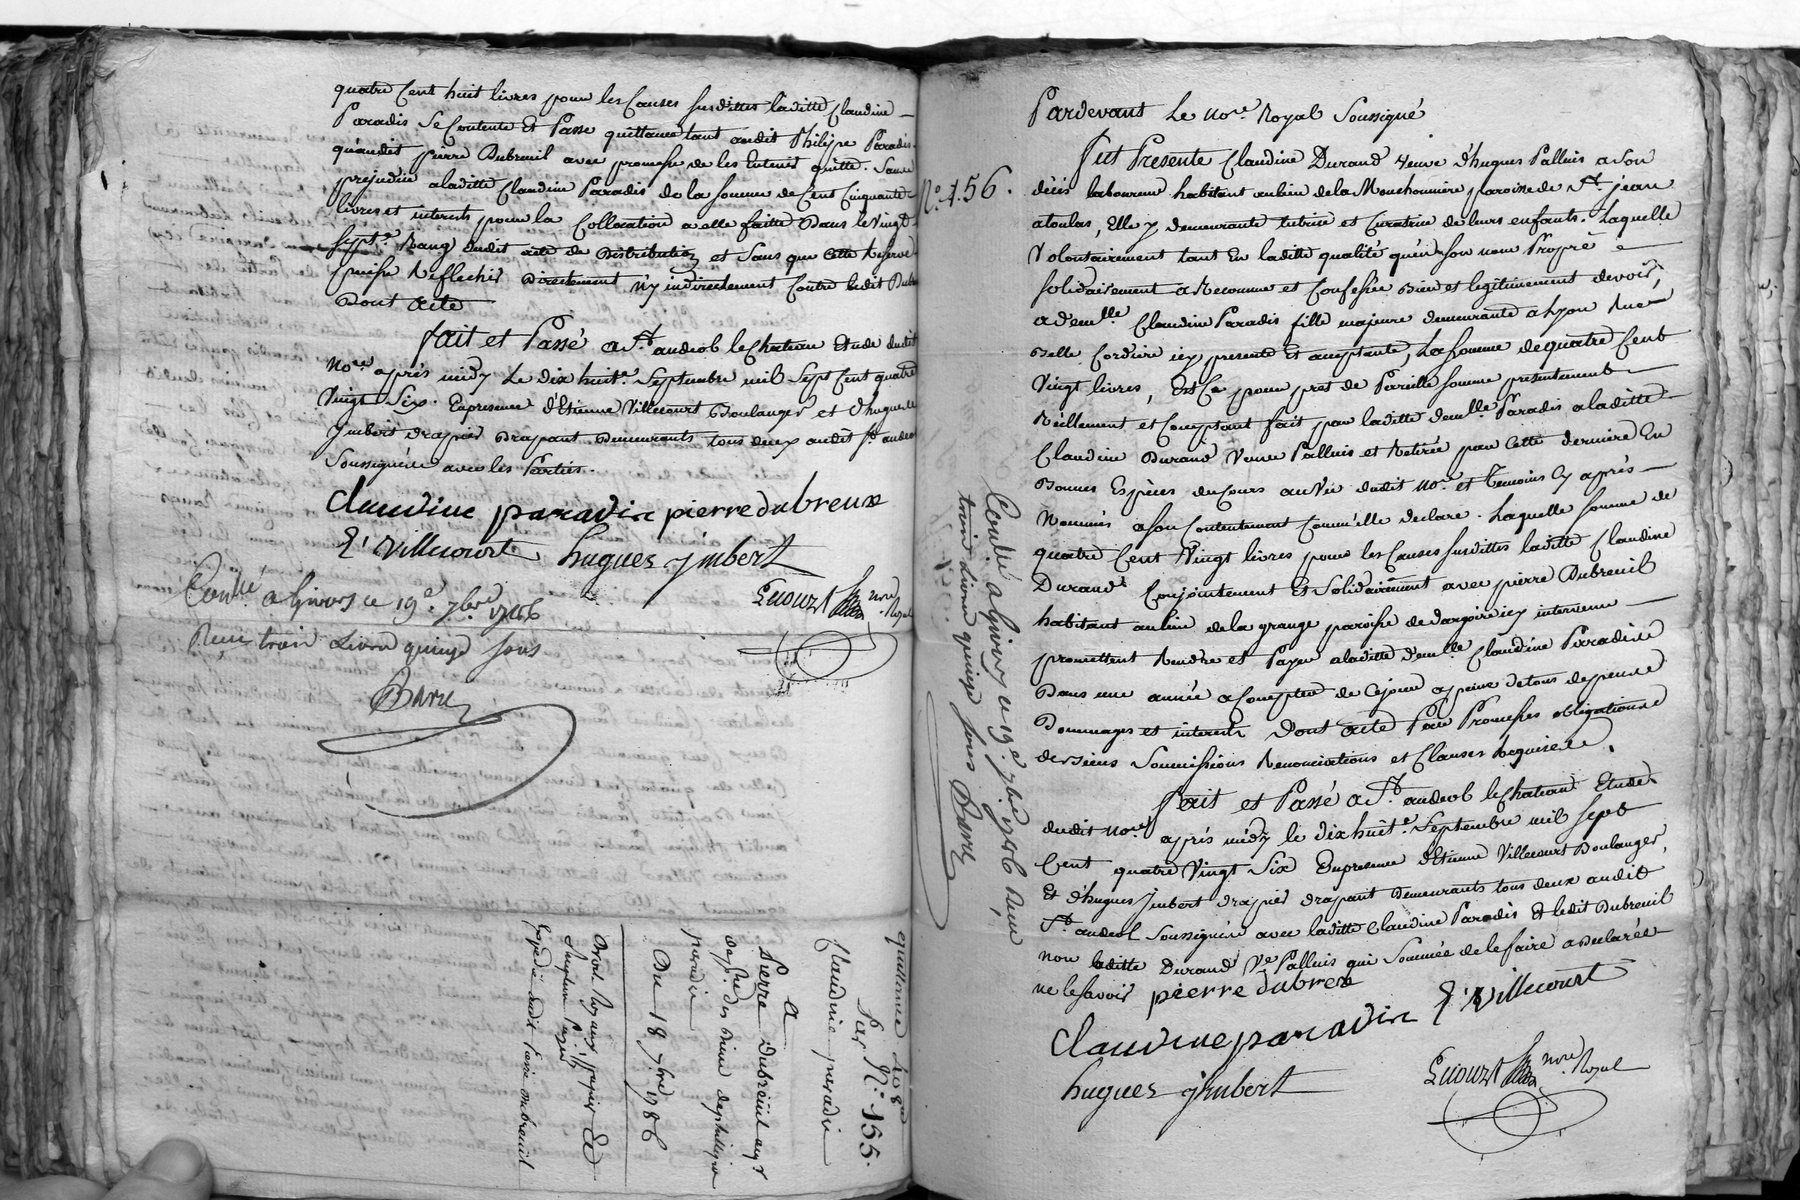 quatre Cent huit livres pour les Causes susdittes laditte Claudine
Paradis Se Contente Et Passe quittance tant audit Philipe Paradis
qu'audit pierre Dubreuil avec promesse de les tenir quitte. Sans
prejudice a laditte Claudine Paradis de la somme de Cent Cinquante
livres et interets pour la Collocation a elle faitte Dans le Vingt
Sept.e Rang dudit acte de Distribution et Sans que Cette Reserve
puisse Reflechir Directement n'y indirectement Contre ledit Dubreuil
Dont Acte
fait et Passé a St. andeol le Chateau Etude dudit
No.re après midy Le dix huit.e Septembre mil Sept Cent quatre
Vingt Six. En presence d'Etienne Villecourt Boulanger et d'hugues
jmbert drapier Drapant Demeurants tous deux audit St. andeol
Soussignés avec les Parties.
Claudine paradis pierre dubreux
E. Villecourt hugues jmbert
Guouzt no.re Royal
Con.llé a Givors ce 19.e 7bre 1786
Reçu trois Livres quinze sous
Barre
quittance 408
Par N.o 155.
Claudine paradis
a
Pierre dubreuil
Du 18 7bre 1786
N.o 156.
Con.llé a Givors ce 19.e 7bre 1786 Reçu
trois Livres quinze sous Barre
Pardevant Le no.re Royal Soussigné
fut Presente Claudine Durand veuve d'hugues Palluis a Son
décès laboureur habitant au lieu de la Mouchonniere paroisse de St. jean
a toulas, Elle y demeurante tutrice et Curatrice de leurs enfants. Laquelle
Volontairement tant En laditte qualité qu'en son nom Propre
Solidairement a Reconnu et Confessé bien et legitimement devoir,
a dem.lle Claudine Paradis fille majeure demeurante a Lyon Rue
Belle Cordiere icy presente Et acceptante, La somme de quatre Cent
Vingt livres, Et Ce pour pret de Pareille somme presentement
Réellement et Comptant fait par laditte dem.lle Paradis a laditte
Claudine Durand Veuve Palluis et Retirée par Cette derniere En
Bonnes Especes du Cours au Vu dudit no.re et Temoins Cy après
Nommés a son Contentement Comm'elle declare. Laquelle somme de
quatre Cent Vingt livres pour les Causes susdittes laditte Claudine
Durand Conjointement Et Solidairement avec pierre Dubreuil
habitant au lieu de la grange paroisse de dargoire icy intervenu
promettent Rendre et Payer a laditte dem.lle Claudine Paradis
Dans une année a Compter de Ce jour a peine de tous depens
Dommages et interets Dont acte Par Promesses obligations de
des siens Soumissions Renonciations et Clauses Requises.
fait et Passé a St. andeol le Chateau Etude
dudit no.re après midy le dix huit.e Septembre mil Sept
Cent quatre Vingt Six En presence d'Etienne Villecourt Boulanger,
Et d'hugues jmbert drapier drapant Demeurants tous deux audit
St. andeol Soussignés avec laditte Claudine Paradis Et ledit Dubreuil
non laditte Durand V.e Palluis qui Sommée de le faire a Declaré
ne le Savoir pierre dubreux E. Villecourt
Claudine paradis
hugues jmbert Guouzt no.re Royal